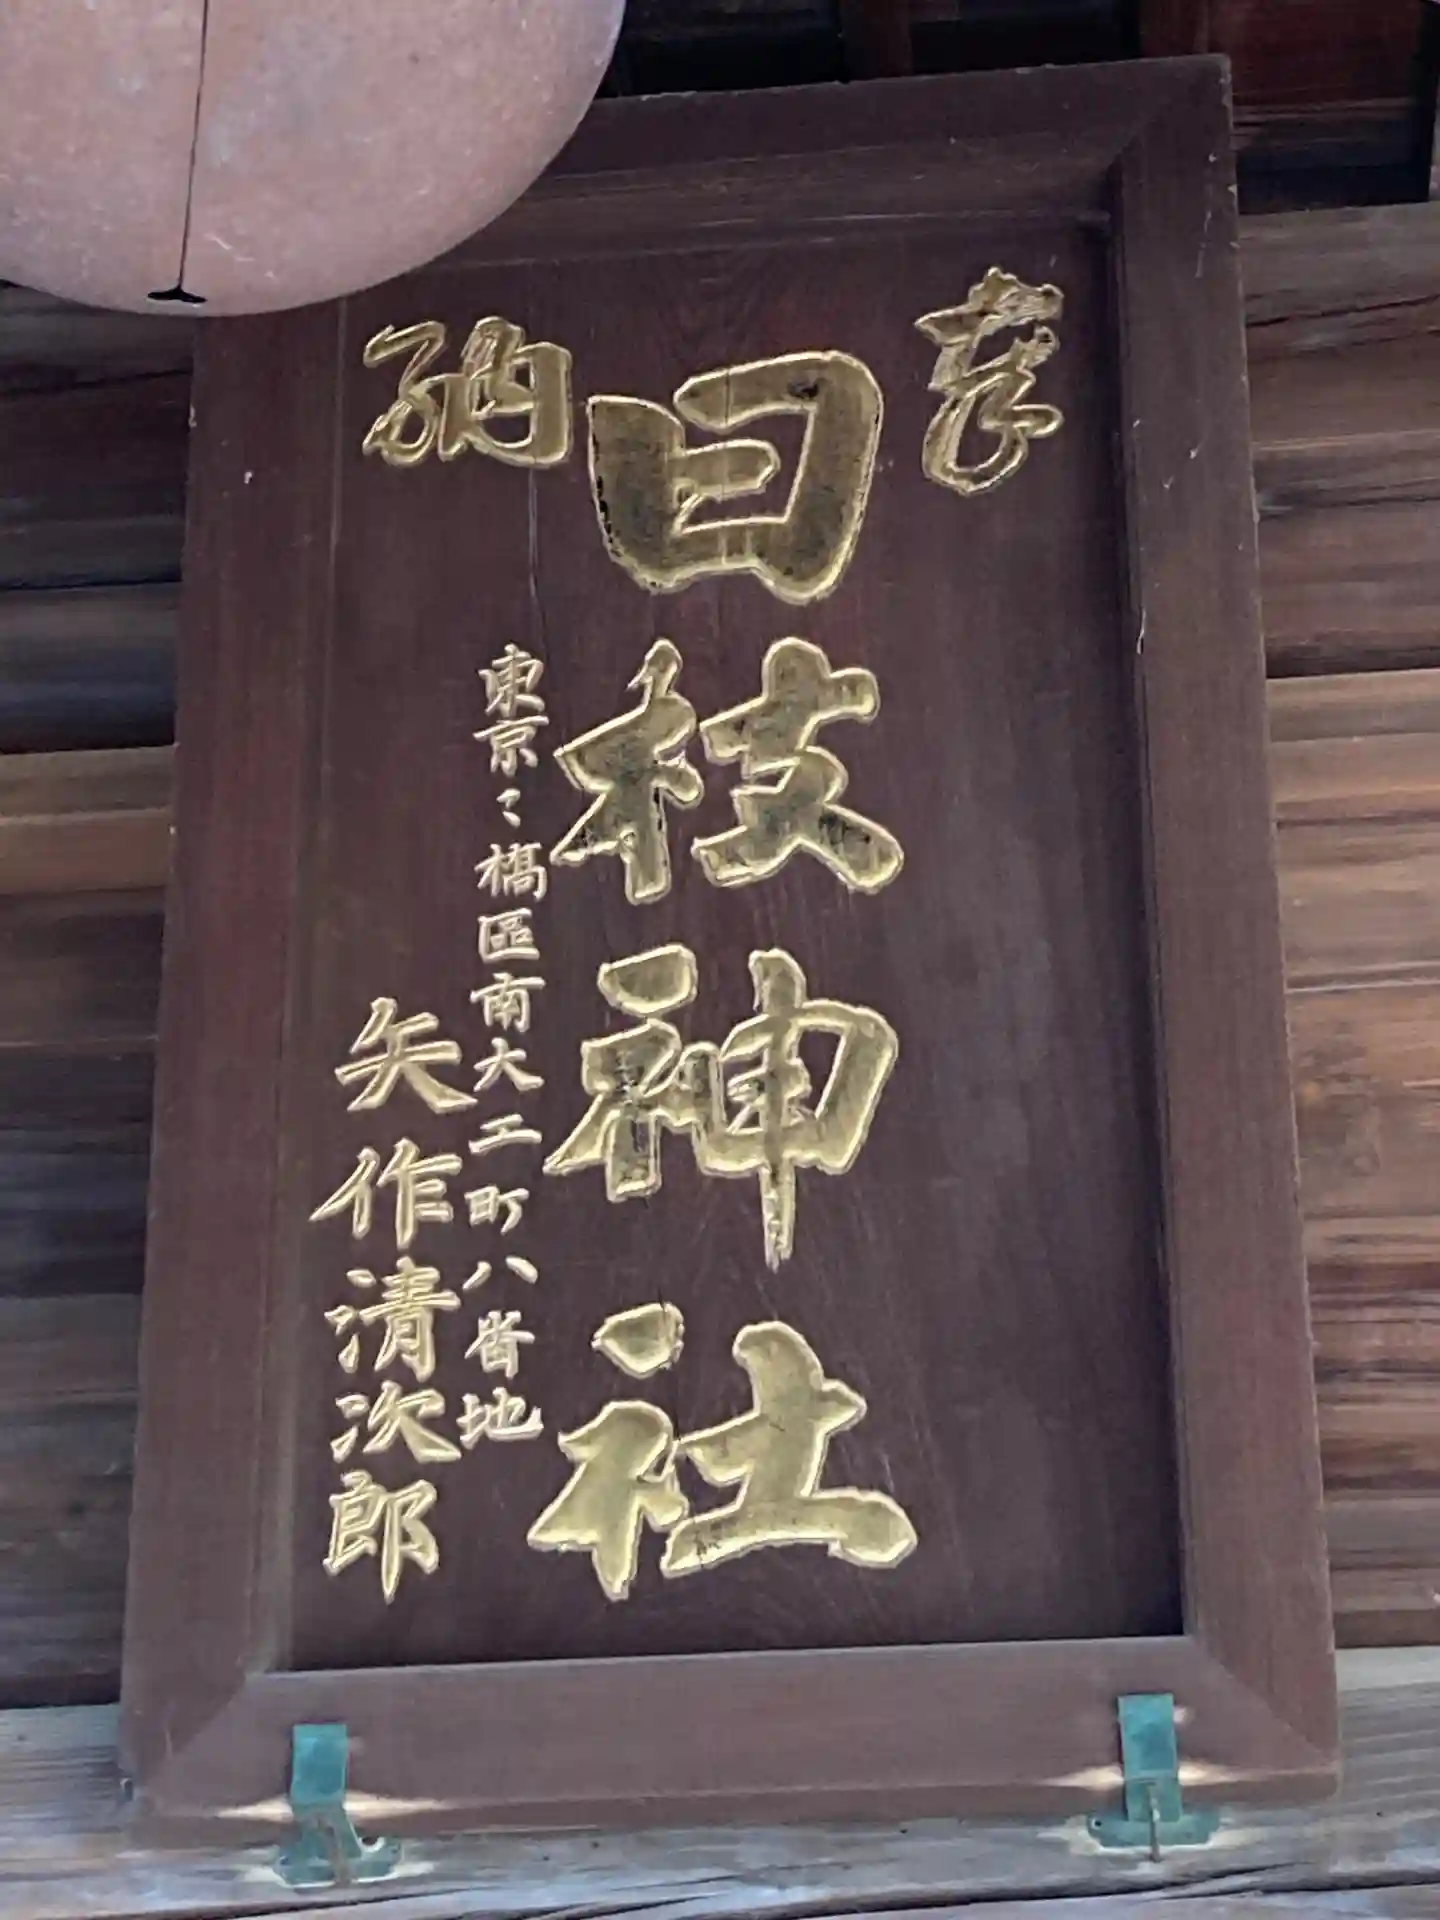 奉納
日枝神社
東京々橋區南大工町八番地
矢作清次郎